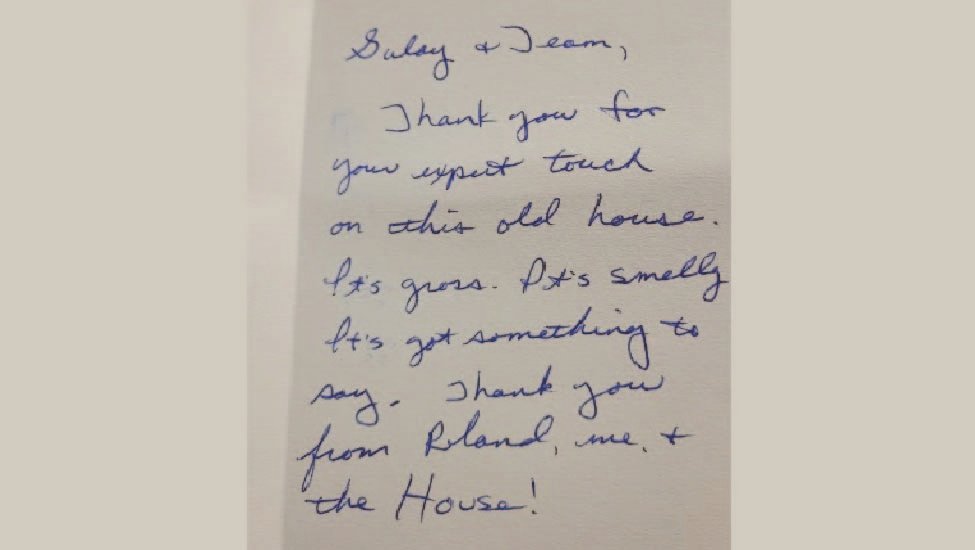 Sulay + Team,
Thank you for
your expert touch
on this old house.
It's gross. It's smelly
It's got something to
say. Thank you
from Roland, me, +
the House!